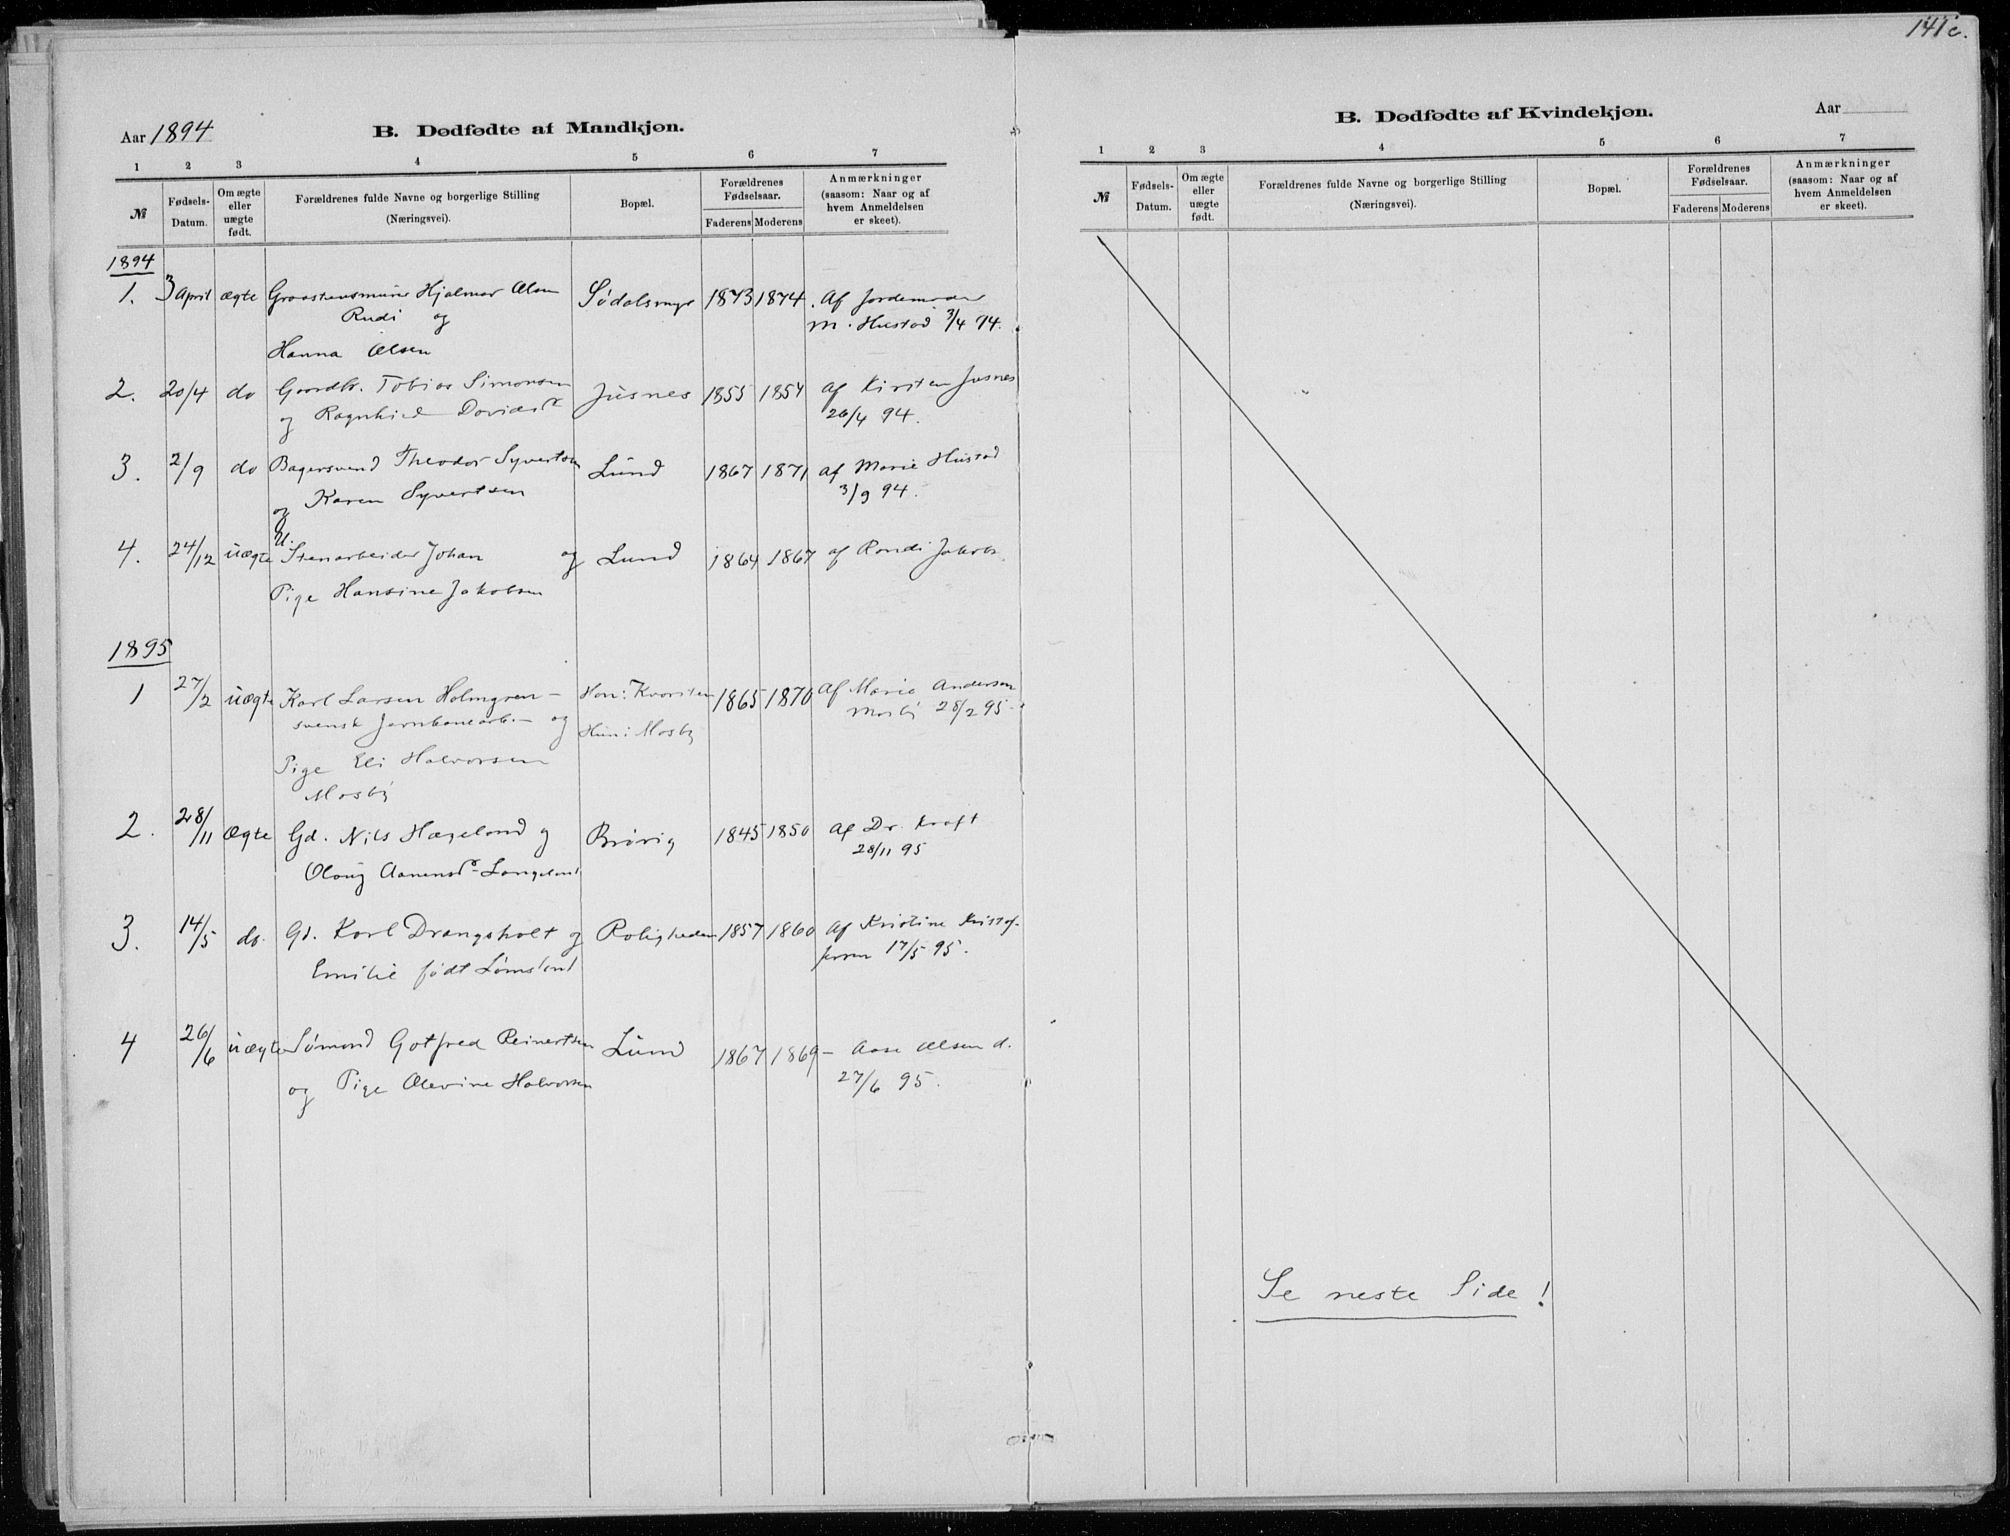 141c.
Aar 1894
B. Dødfødte af Mandkjøn.
1 2 3 4 5 6 7
№
Fødsels-Datum.
Om ægte eller uægte født.
Forældrenes fulde Navne og borgerlige Stilling (Næringsvei).
Bopæl.
Forældrenes Fødselsaar.
Faderens Moderens
Anmærkninger (saasom: Naar og af hvem Anmeldelsen er skeet).
1894
1. 3 April ægte Hjalmar Olsen Sødalsmyr 1873 1874 Af Jordemoder
Rudi og M. Hustad 3/4 94.
Hanna Olsen
2. 20/4 do Gaardbr. Tobias Simonsen Jusnes 1855 1854 af Kirsten Jusnes
og Ragnhild Davidsd. 26/4 94.
3. 2/9 do Bagersvend Theodor Syvertsen Lund 1867 1871 af Marie Hustad
og Karen Syvertsen 3/9 94.
4. 24/12 uægte U. Stenarbeider Johan og Lund 1864 1867 af Randi Jakobs
Pige Hansine Jakobsen
1895
1 27/2 uægte Karl Larsen Holmgren – Han: Kvarsten 1865 1870 Af Marie Andersen
svensk Jernbanearb. – og Hun: Mosby Mosby 28/2 95
Pige Eli Halvorsen
Mosby
2. 28/11 Ægte Gd. Nils Hægeland og Brøvig 1845 1850 Af Dr. Kraft
Olaug Aanensd. Langeland 28/11 95
3. 14/5 do. Gd. Karl Drangsholt og Roligheden 1857 1860 Af Kristine Kristof-
Emilie født Lømsland fersen 17/5 95.
4 26/6 uægte Sømand Gotfred Reinertsen Lund 1867 1869 – Aase Olsen d.
og Pige Olevine Halvorsen 27/6 95.
B. Dødfødte af Kvindekjøn.
Aar
1 2 3 4 5 6 7
№
Fødsels-Datum.
Om ægte eller uægte født.
Forældrenes fulde Navne og borgerlige Stilling (Næringsvei).
Bopæl.
Forældrenes Fødselsaar.
Faderens Moderens
Anmærkninger (saasom: Naar og af hvem Anmeldelsen er skeet).
Se neste Side!